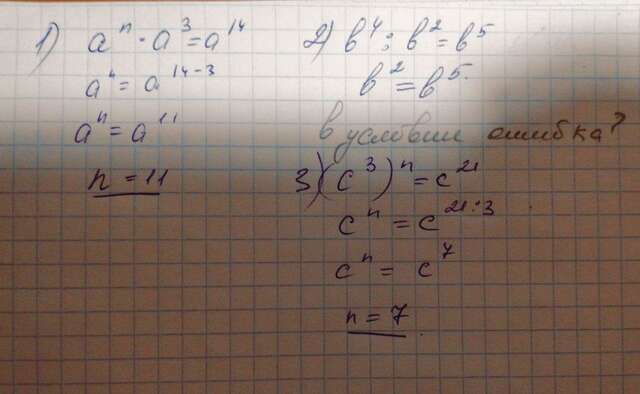 1) aⁿ · a³ = a¹⁴
aⁿ = a¹⁴⁻³
aⁿ = a¹¹
n = 11
2) в⁴ : в² = в⁵
в² = в⁵
в условии ошибка?
3) (c³)ⁿ = c²¹
cⁿ = c²¹:³
cⁿ = c⁷
n = 7